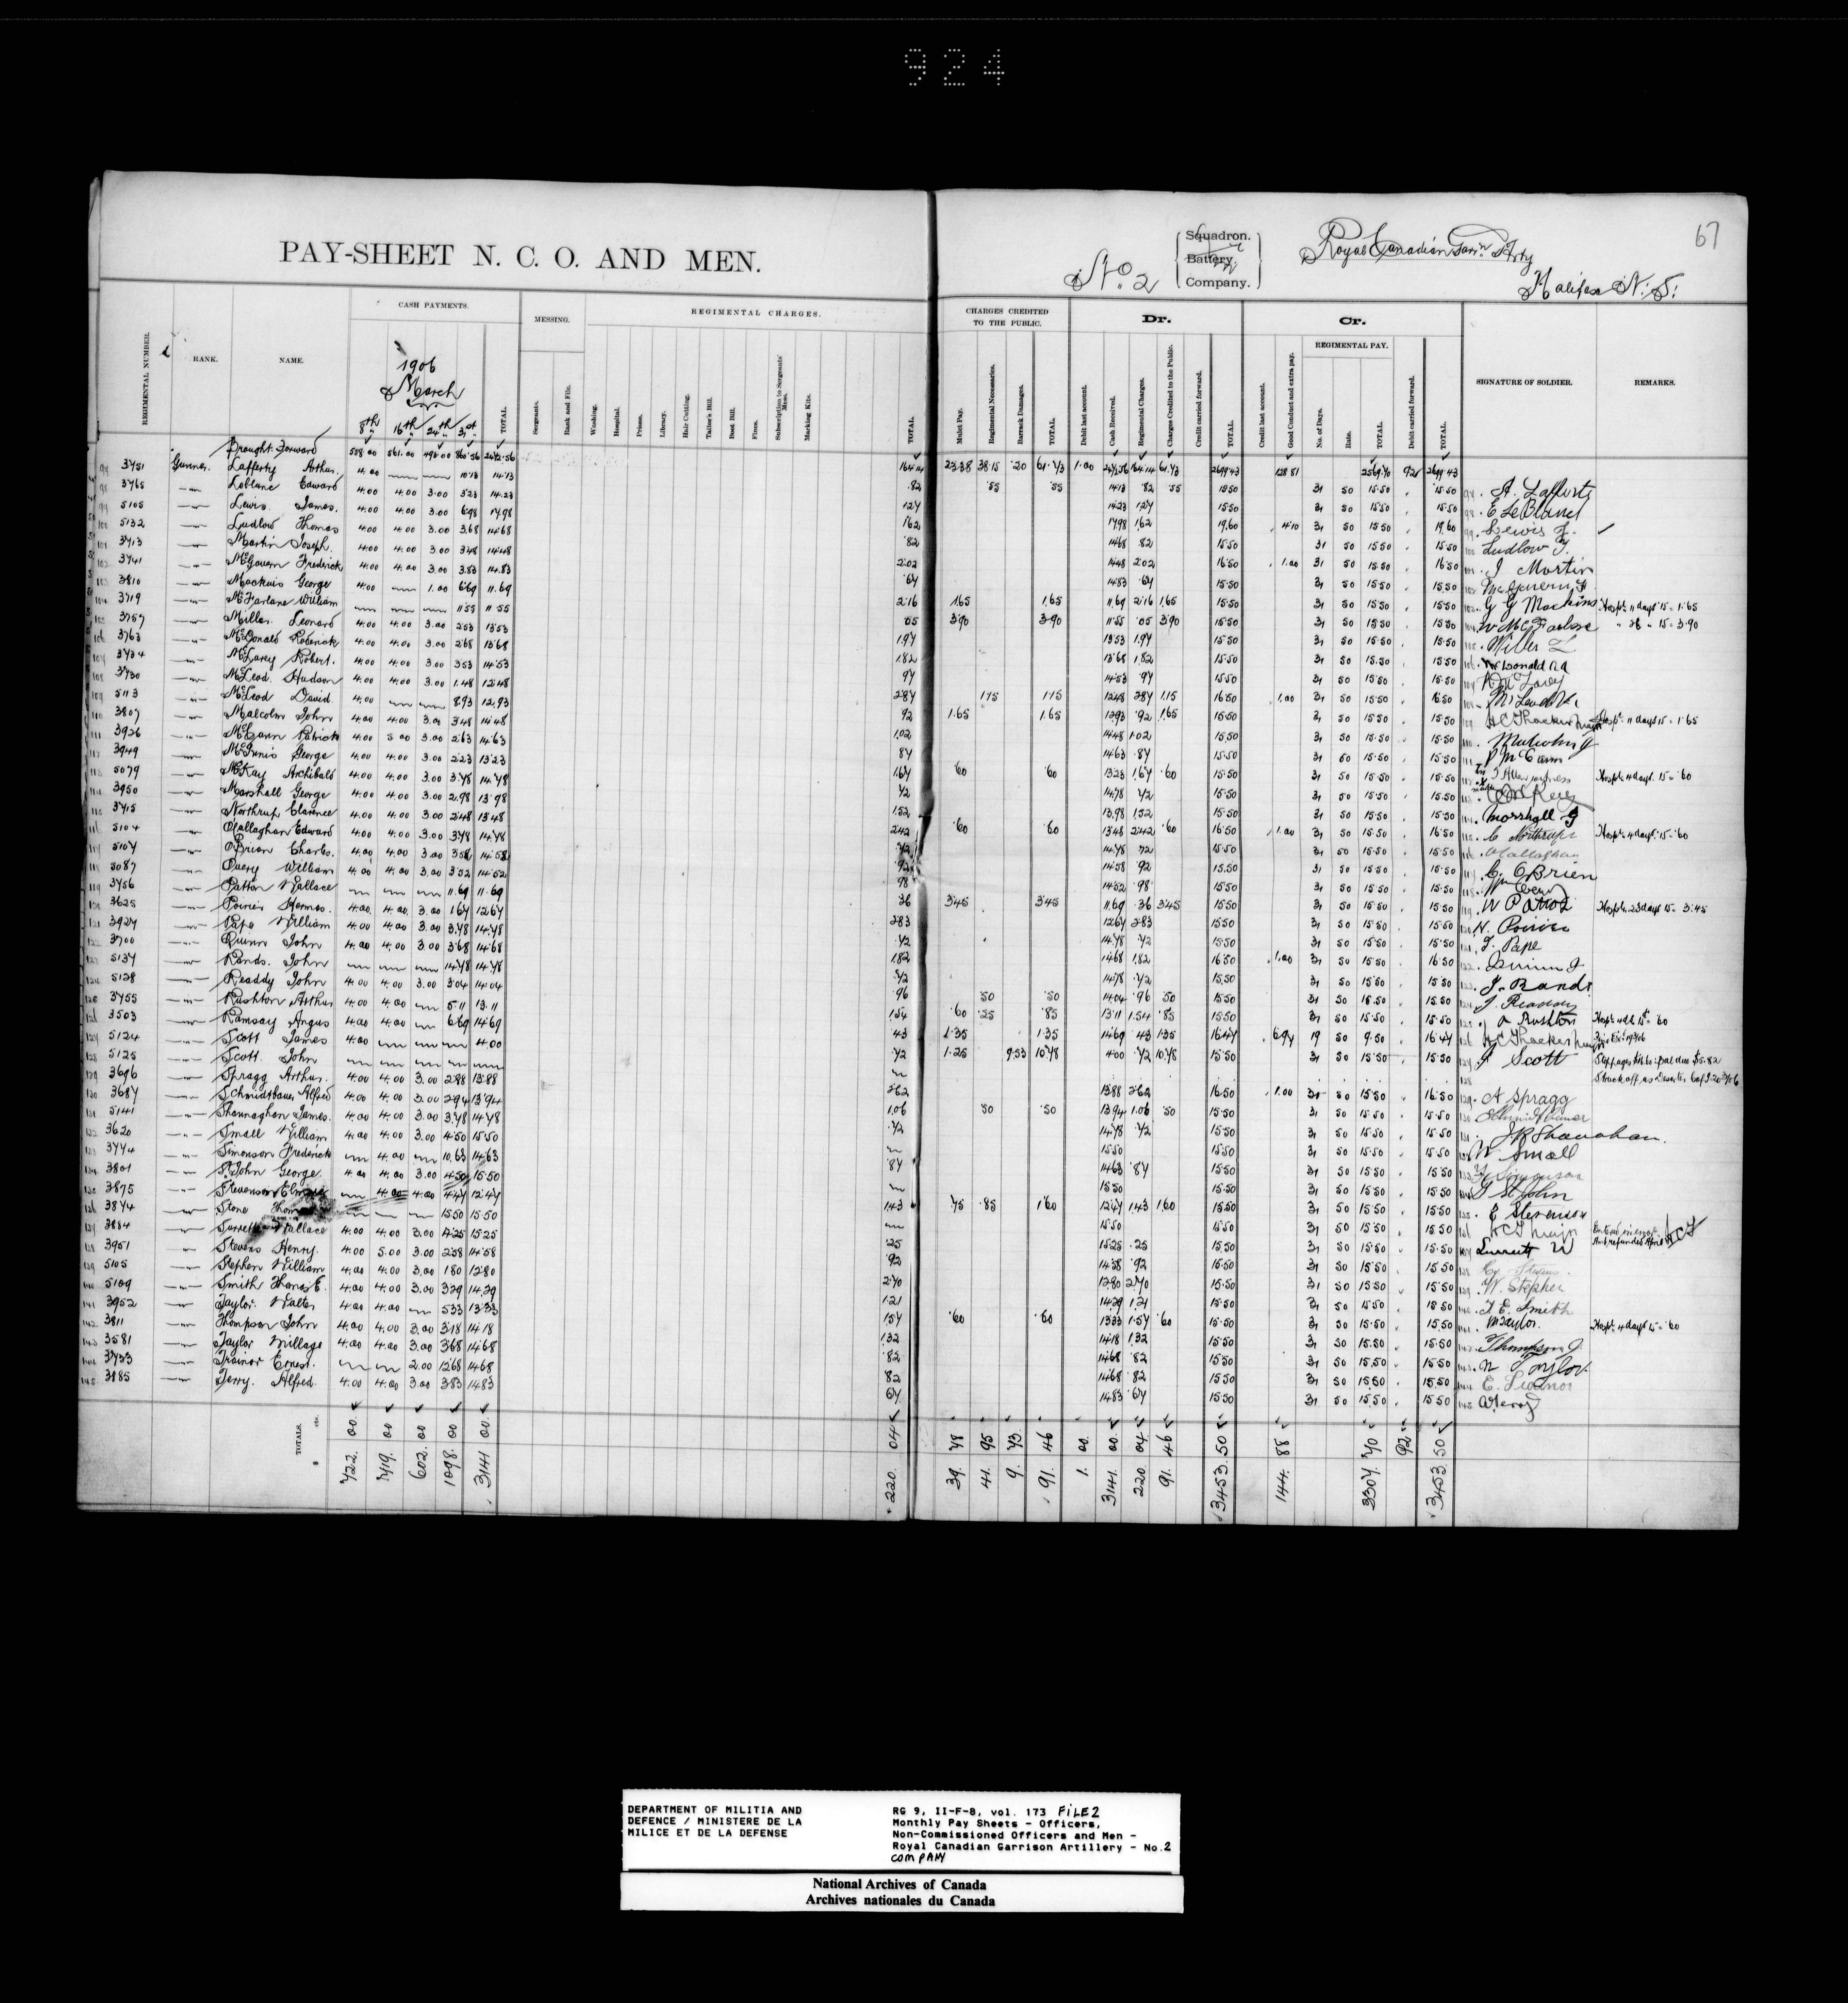 924
67
PAY-SHEET N. C. O. AND MEN.
No. 2
Squadron.
Battery.
Company.
Royal Canadian Garrn Arty
Halifax N.S.
REGIMENTAL NUMBER.
RANK.
NAME.
CASH PAYMENTS.
1906
March
8th 16th 24th 31st
TOTAL.
MESSING.
Sergeants.
Rank and File.
REGIMENTAL CHARGES.
Washing.
Hospital.
Prison.
Library.
Hair Cutting.
Tailor's Bill.
Boot Bill.
Fines.
Subscription to Sergeants' Mess.
Marking Kits.
TOTAL.
CHARGES CREDITED TO THE PUBLIC.
Mulct Pay.
Regimental Necessaries.
Barrack Damages.
TOTAL.
Dr.
Debit last account.
Cash Received.
Regimental Charges.
Charges Credited to the Public.
Credit carried forward.
TOTAL.
Cr.
Credit last account.
Good Conduct and extra pay.
REGIMENTAL PAY.
No. of Days.
Rate.
TOTAL.
Debit carried forward.
TOTAL.
SIGNATURE OF SOLDIER.
REMARKS.
Brought Forward 558.00 561.00 493.00 2642.56 164.14 23.38 38.15 .20 61.73 1.00 164.14 61.73 2699.43 128.81 2569.70 .92 2699.43
3451 Gunner Lafferty Arthur 4.00 10.13 14.13 .82 .55 .55 14.13 .82 .55 15.50 31 50 15.50 15.50 A. Lafferty
3765 Leblanc Edward 4.00 4.00 3.00 3.23 14.23 1.27 14.23 1.27 15.50 31 50 15.50 15.50 E LeBlanc
5105 Lewis James 4.00 4.00 3.00 6.98 17.98 1.62 17.98 1.62 19.60 4.10 31 50 15.50 19.60 Lewis J.
5132 Ludlow Thomas 4.00 4.00 3.00 3.68 14.68 .82 14.68 .82 15.50 31 50 15.50 15.50 Ludlow T.
3713 Martin Joseph 4.00 4.00 3.00 3.48 14.48 2.02 14.48 2.02 16.50 1.00 31 50 15.50 16.50 J Martin
3741 McGovern Frederick 4.00 4.00 3.00 3.83 14.83 .67 14.83 .67 15.50 31 50 15.50 15.50 McGovern F
3810 Mackins George 4.00 1.00 6.69 11.69 2.16 1.65 1.65 11.69 2.16 1.65 15.50 31 50 15.50 15.50 G G Mackins Hospl. 11 days 15 = 1.65
3719 McFarlane William 11.55 11.55 .05 3.90 3.90 11.55 .05 3.90 15.50 31 50 15.50 15.50 W McFarlane " 26 " 15 = 3.90
3757 Miller Leonard 4.00 4.00 3.00 2.53 13.53 1.97 13.53 1.97 15.50 31 50 15.50 15.50 Miller L
3763 McDonald Roderick 4.00 4.00 3.00 2.68 13.68 1.82 13.68 1.82 15.50 31 50 15.50 15.50 McDonald Rd
3734 McLavey Robert 4.00 4.00 3.00 3.53 14.53 .97 14.53 .97 15.50 31 50 15.50 15.50
3730 McLeod Hudson 4.00 4.00 3.00 1.48 12.48 2.87 1.15 1.15 12.48 2.87 1.15 16.50 1.00 31 50 15.50 16.50
5113 McLeod David 4.00 8.93 12.93 .92 1.65 1.65 12.93 .92 1.65 15.50 31 50 15.50 15.50 H C Thacker Major Hospl. 11 days 15 = 1.65
3807 Malcolm John 4.00 4.00 3.00 3.48 14.48 1.02 14.48 1.02 15.50 31 50 15.50 15.50 Malcolm J
3926 McCann Patrick 4.00 5.00 3.00 2.63 14.63 .87 14.63 .87 15.50 31 50 15.50 15.50 P McCann
3949 McInnis George 4.00 4.00 3.00 2.23 13.23 1.67 .60 .60 13.23 1.67 .60 15.50 31 50 15.50 15.50 Hospl. 4 days 15 = .60
5079 McKay Archibald 4.00 4.00 3.00 3.78 14.78 .72 14.78 .72 15.50 31 50 15.50 15.50
3950 Marshall George 4.00 4.00 3.00 2.98 13.98 1.52 13.98 1.52 15.50 31 50 15.50 15.50 Marshall G
3715 Northrup Clarence 4.00 4.00 3.00 2.48 13.48 2.42 .60 .60 13.48 2.42 .60 16.50 1.00 31 50 15.50 16.50 C Northrup Hospl. 4 days 15 = .60
5104 OCallaghan Edward 4.00 4.00 3.00 3.78 14.78 .72 14.78 .72 15.50 31 50 15.50 15.50 OCallaghan
5107 OBrien Charles 4.00 4.00 3.00 3.58 14.58 .92 14.58 .92 15.50 31 50 15.50 15.50 C. OBrien
5087 Overy William 4.00 4.00 3.00 3.52 14.52 .98 14.52 .98 15.50 31 50 15.50 15.50
3456 Patton Wallace 11.69 11.69 .36 3.45 3.45 11.69 .36 3.45 15.50 31 50 15.50 15.50 W Patton Hospl. 23 days 15 = 3.45
3625 Poirier Hermas 4.00 4.00 3.00 1.67 12.67 2.83 12.67 2.83 15.50 31 50 15.50 15.50 H. Poirier
3927 Pape William 4.00 4.00 3.00 3.78 14.78 .72 14.78 .72 15.50 31 50 15.50 15.50 Pape
3700 Quinn John 4.00 4.00 3.00 3.68 14.68 1.82 14.68 1.82 16.50 1.00 31 50 15.50 16.50 Quinn J
5137 Rands John 14.78 14.78 .72 14.78 .72 15.50 31 50 15.50 15.50 J. Rands
5128 Readdy John 4.00 4.00 3.00 3.04 14.04 .96 .50 .50 14.04 .96 .50 15.50 31 50 15.50 15.50
3455 Rushton Arthur 4.00 4.00 5.11 13.11 1.54 .60 .25 .85 13.11 1.54 .85 15.50 31 50 15.50 15.50 A Rushton
3503 Ramsay Angus 4.00 4.00 6.69 14.69 .43 1.35 1.35 14.69 .43 1.35 16.47 6.97 19 50 9.50 16.47 H C Thacker Major
5124 Scott James 4.00 4.00 .72 1.25 9.53 10.78 4.00 .72 10.78 15.50 31 50 15.50 15.50 J Scott
5125 Scott John Struck off as Deserter
3696 Spragg Arthur 4.00 4.00 3.00 2.88 13.88 2.62 13.88 2.62 16.50 1.00 31 50 15.50 16.50 A Spragg
3687 Schmidtbauer Alfred 4.00 4.00 3.00 2.94 13.94 1.06 .50 .50 13.94 1.06 .50 15.50 31 50 15.50 15.50
5141 Shannaghan James 4.00 4.00 3.00 3.78 14.78 .72 14.78 .72 15.50 31 50 15.50 15.50 Shanahan
3620 Small William 4.00 4.00 3.00 4.50 15.50 15.50 15.50 31 50 15.50 15.50 W. Small
3774 Simonson Frederick 4.00 10.63 14.63 .87 14.63 .87 15.50 31 50 15.50 15.50
3801 St John George 4.00 4.00 3.00 4.50 15.50 15.50 15.50 31 50 15.50 15.50 G St John
3875 Stevenson 4.00 4.00 4.47 12.47 1.43 .75 .85 1.60 12.47 1.43 1.60 15.50 31 50 15.50 15.50 E Stevenson
3874 Stone 15.50 15.50 15.50 15.50 31 50 15.50 15.50
3884 Surrette Wallace 4.00 4.00 3.00 4.25 15.25 .25 15.25 .25 15.50 31 50 15.50 15.50 Surrette W
3951 Stevens Henry 4.00 5.00 3.00 2.58 14.58 .92 14.58 .92 15.50 31 50 15.50 15.50 Hy Stevens
5105 Stephen William 4.00 4.00 3.00 1.80 12.80 2.70 12.80 2.70 15.50 31 50 15.50 15.50 W. Stephen
5109 Smith Thomas E. 4.00 4.00 3.00 3.29 14.29 1.21 14.29 1.21 15.50 31 50 15.50 15.50 T. E. Smith
3952 Taylor Walter 4.00 4.00 5.33 13.33 1.57 .60 .60 13.33 1.57 .60 15.50 31 50 15.50 15.50 W Taylor Hospl. 4 days 15 = .60
3811 Thompson John 4.00 4.00 3.00 3.18 14.18 1.32 14.18 1.32 15.50 31 50 15.50 15.50 Thompson J.
3581 Taylor Village 4.00 4.00 3.00 3.68 14.68 .82 14.68 .82 15.50 31 50 15.50 15.50 Taylor
3733 Trainor Ernest 2.00 12.68 14.68 .82 14.68 .82 15.50 31 50 15.50 15.50 E. Trainor
3885 Terry Alfred 4.00 4.00 3.00 3.83 14.83 .67 14.83 .67 15.50 31 50 15.50 15.50 A Terry
TOTALS, etc. 722.00 719.00 602.00 1098.00 3141.00 220.04 39.78 41.95 9.73 91.46 1.00 3141.00 220.04 91.46 3453.50 144.88 3307.70 .92 3453.50
DEPARTMENT OF MILITIA AND
DEFENCE / MINISTERE DE LA
MILICE ET DE LA DEFENSE
RG 9, II-F-8, vol. 173 FILE 2
Monthly Pay Sheets - Officers,
Non-Commissioned Officers and Men -
Royal Canadian Garrison Artillery - No. 2
COMPANY
National Archives of Canada
Archives nationales du Canada